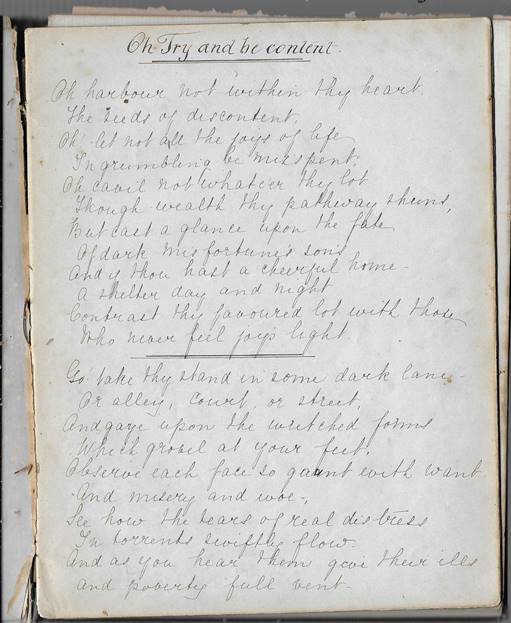 Oh Try and be content.
Oh harbour not within thy heart.
The seeds of discontent,
Oh' let not all the joys of life
In grumbling be misspent.
Oh cavil not whate'er thy lot
Though wealth thy pathway shuns,
But cast a glance upon the fate
Of dark misfortune's sons
And if thou hast a cheerful home -
A shelter day and night
Contrast thy favoured lot with those
Who never feel joy's light.
Go take thy stand in some dark lane -
Or alley, court, or street,
And gaze upon the wretched forms
Which grovel at your feet,
Observe each face so gaunt with want
And misery and woe -,
See how the tears of real distress
In torrents swiftly flow -
And as you hear them give their ills
and poverty full vent -